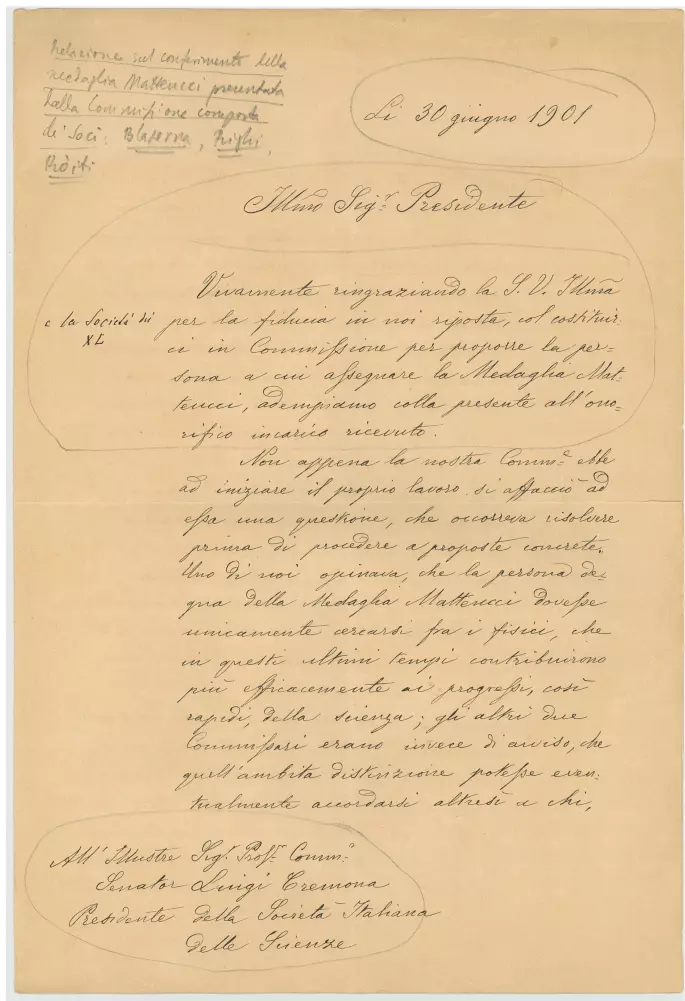 Relazione sul conferimento della
medaglia Matteucci presentata
dalla Commissione composta
dei Soci: Blaserna, Righi,
Ròiti
Li 30 giugno 1901
Illmo Sigr. Presidente
Vivamente ringraziando la S. V. Illma
e la Società dei
XL
per la fiducia in noi riposta, col costituir-
ci in Commissione per proporre la per-
sona a cui assegnare la Medaglia Mat-
teucci, adempiamo colla presente all'ono-
rifico incarico ricevuto.
Non appena la nostra Comme. ebbe
ad iniziare il proprio lavoro si affacciò ad
essa una questione, che occorreva risolvere
prima di procedere a proposte concrete.
Uno di noi opinava, che la persona de-
gna della Medaglia Matteucci dovesse
unicamente cercarsi fra i fisici, che
in questi ultimi tempi contribuirono
più efficacemente ai progressi, così
rapidi, della scienza; gli altri due
Commissari erano invece di avviso, che
quell'ambita distinzione potesse even-
tualmente accordarsi altresì a chi,
All'Illustre Sigr. Profr. Comme.
Senator Luigi Cremona
Presidente della Società Italiana
delle Scienze